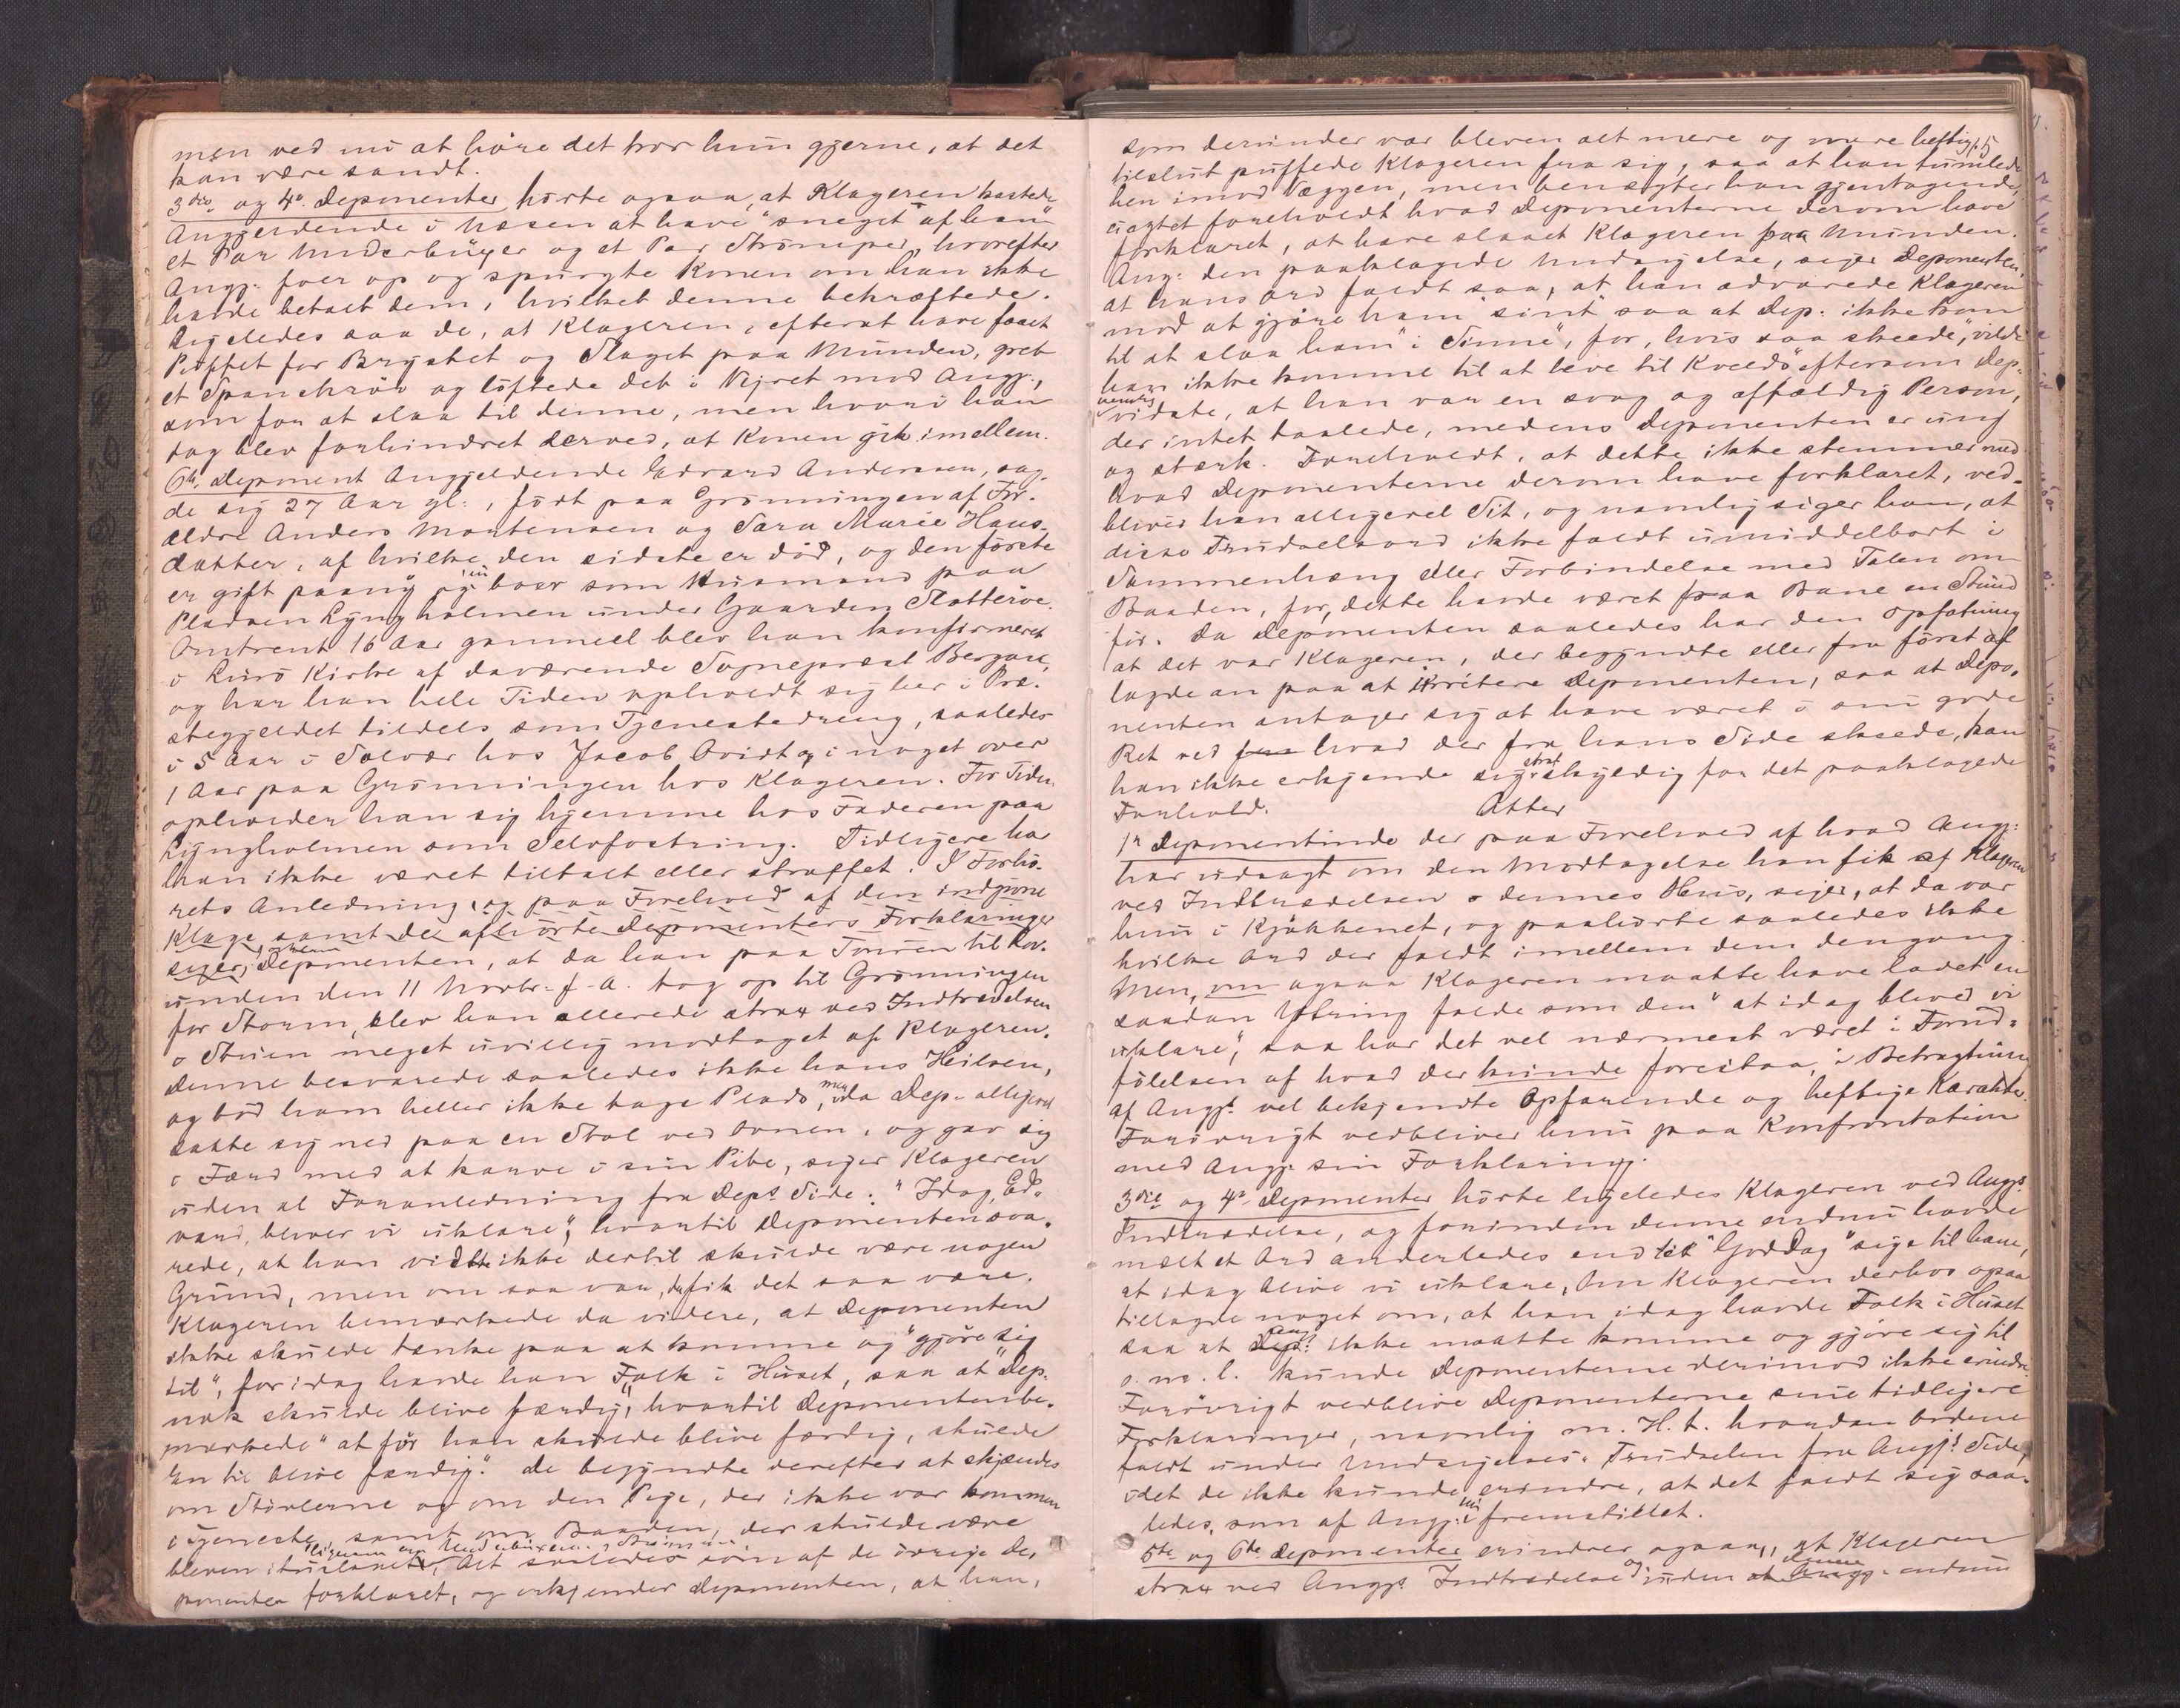 men ved nu at høre det tror hun gjerne, at det
kan være sandt.
3die og 4de Deponenter hørte ogsaa, at Klageren kastede
Angjeldende i Næsen at have "sneget" af ham
et Par Underbuxer og et Par Strømper, hvorefter
Angj. foer op og spurgte Konen om han ikke
havde betalt dem, hvilket denne bekræftede.
Ligeledes saa de, at Klageren, efterat have faaet
Puffet for Brystet og Slaget paa Munden, greb
et Spanskrør og løftede det i Vejret mod Angj.,
som for at slaa til denne, men hvori han
dog blev forhindret derved, at Konen gik imellem.
6te Deponent Angjeldende Edvard Anderssen, sag-
de sig 27 Aar gl., født paa Grønningen af For-
ældre Anders Mortensen og Sara Marie Hans-
datter, af hvilke den sidste er død, og den første
er gift paany og nu boer som Husmand paa
Pladsen Lyngholmen under Gaarden Slotterøe.
Omtrent 16 Aar gammel blev han konfirmeret
i Lurø Kirke af daværende Sognepræst
og har han hele Tiden opholdt sig her i Præ-
stegjeldet tildels som Tjenestedreng, saaledes
i 5 Aar i Solvær hos Jacob og i noget over
1 Aar paa Grønningen hos Klageren. For Tiden
opholder han sig hjemme hos Faderen paa
Lyngholmen som Selvfostring. Tidligere har
han ikke været tiltalt eller straffet. I Forhø-
rets Anledning, og paa Forehold af den indgivne
Klage samt de afhørte Deponenters Forklaringer
siger Deponenten, at da han paa Touren til
den 11 Novbr. f. A. tog op til Grønningen
for Storm, blev han allerede strax ved Indtrædelsen
i Stuen meget uvillig modtaget af Klageren.
Denne besvarede saaledes ikke hans Heilsen,
og bød ham heller ikke tage Plads, men da Dep. alligevel
satte sig ned paa en Stol ved Ovnen, og gav sig
i Færd med at karve i sin Pibe, siger Klageren
uden al Foranledning fra Deps Side: "Idag, Ed-
vard, bliver vi uklare", hvortil Deponenten sva-
rede, at han vidste ikke dertil skulde være nogen
Grund, men om saa var, da fik det saa være.
Klageren bemærkede da videre, at Deponenten
ikke skulde tænke paa at komme og "gjøre sig
til", for idag havde han Folk i Huset, saa at "Dep.
nok skulde blive færdig", hvortil Deponenten be-
mærkede "at før han skulde blive færdig, skulde
En til blive færdig". De begyndte derefter at skjændes
om Støvlerne og om den Pige, der ikke var kommen
i Tjeneste, samt om Baaden, der skulde være
bleven ituslaaet, ligesom om Underbuxerne og Strømperne, Alt saaledes som af de øvrige De-
ponenter forklaret, og erkjender Deponenten, at han,
som derunder var bleven alt mere og mere heftig, 5
tilslut puffede Klageren fra sig, saa at han tumlede
hen imod Væggen, men benægter han gjentagende,
uagtet foreholdt hvad Deponenterne derom have
forklaret, at have slaaet Klageren paa Munden.
Ang. den paaklagede Undsigelse, siger Deponenten,
at hans Ord faldt saa, at han advarede Klageren
mod at gjøre ham "sint" saa at Dep. ikke kom
til at slaa ham "i Sinne", for, hvis saa skeede, "vilde
han ikke komme til at leve til Kvelds" eftersom Dep.
vidste, at han var en svag og affældig Person,
der intet taalede, medens Deponenten er ung
og stærk. Foreholdt, at dette ikke stemmer med
hvad Deponenterne derom have forklaret, ved-
bliver han alligevel Sit, og namlig siger han, at
disse Trudselsord ikke faldt umiddelbart i
Sammenhæng eller Forbindelse med Talen om
Baaden, for, dette havde været paa Bane en Stund
før. Da Deponenten saaledes har den Opfatning
at det var Klageren, der begyndte eller fra først af
lagde an paa at irritere Deponenten, saa at Depo-
nenten antager sig at have været i sin gode
Ret ved hvad der fra hans Side skeede, kan
han ikke erkjende sig strafskyldig for det paaklagede
Forhold. Atter
1ste Deponentinde der paa Forehold af hvad Angj.
har udsagt om den Modtagelse han fik af Klageren
ved Indtrædelsen i dennes Hus, siger, at da var
hun i Kjøkkenet, og paahørte saaledes ikke
hvilke Ord der faldt imellem dem dengang.
Men, om ogsaa Klageren maatte have ladet en
saadan Ytring falde som den "at idag blived vi
uklare", saa har det vel nærmest været i Forud-
følelsen af hvad der kunde forestaa, i Betragtning
af Angjs vel bekjendte opfarende og heftige Karakter.
Forøvrigt vedbliver hun paa Konfrontation
med Angj. sin Forklaring.
3die og 4de Deponenter hørte ligeledes Klageren ved Angjs
Indtrædelse, og forinden denne endnu havde
mælt et Ord anderledes end et "God Dag" sige til ham,
at idag blive vi uklare, Om Klageren derhos ogsaa
tillagde noget om, at han idag havde Folk i Huset
saa at Angj. ikke maatte komme og gjøre sig til
o. m. l. kunde Deponenterne derimod ikke erindre.
Forøvrigt vedblive Deponenterne sine tidligere
Forklaringer, namlig m. H. t. hvordan Ordene
faldt under Undsigelses-Trudselen fra Angjs Side,
idet de ikke kunde erindre, at det faldt sig saa-
ledes, som af Angj. nu fremstillet.
5te og 6te Deponenter erindrer ogsaa, at Klageren
strax ved Angjs Indtrædelse og uden at denne endnu